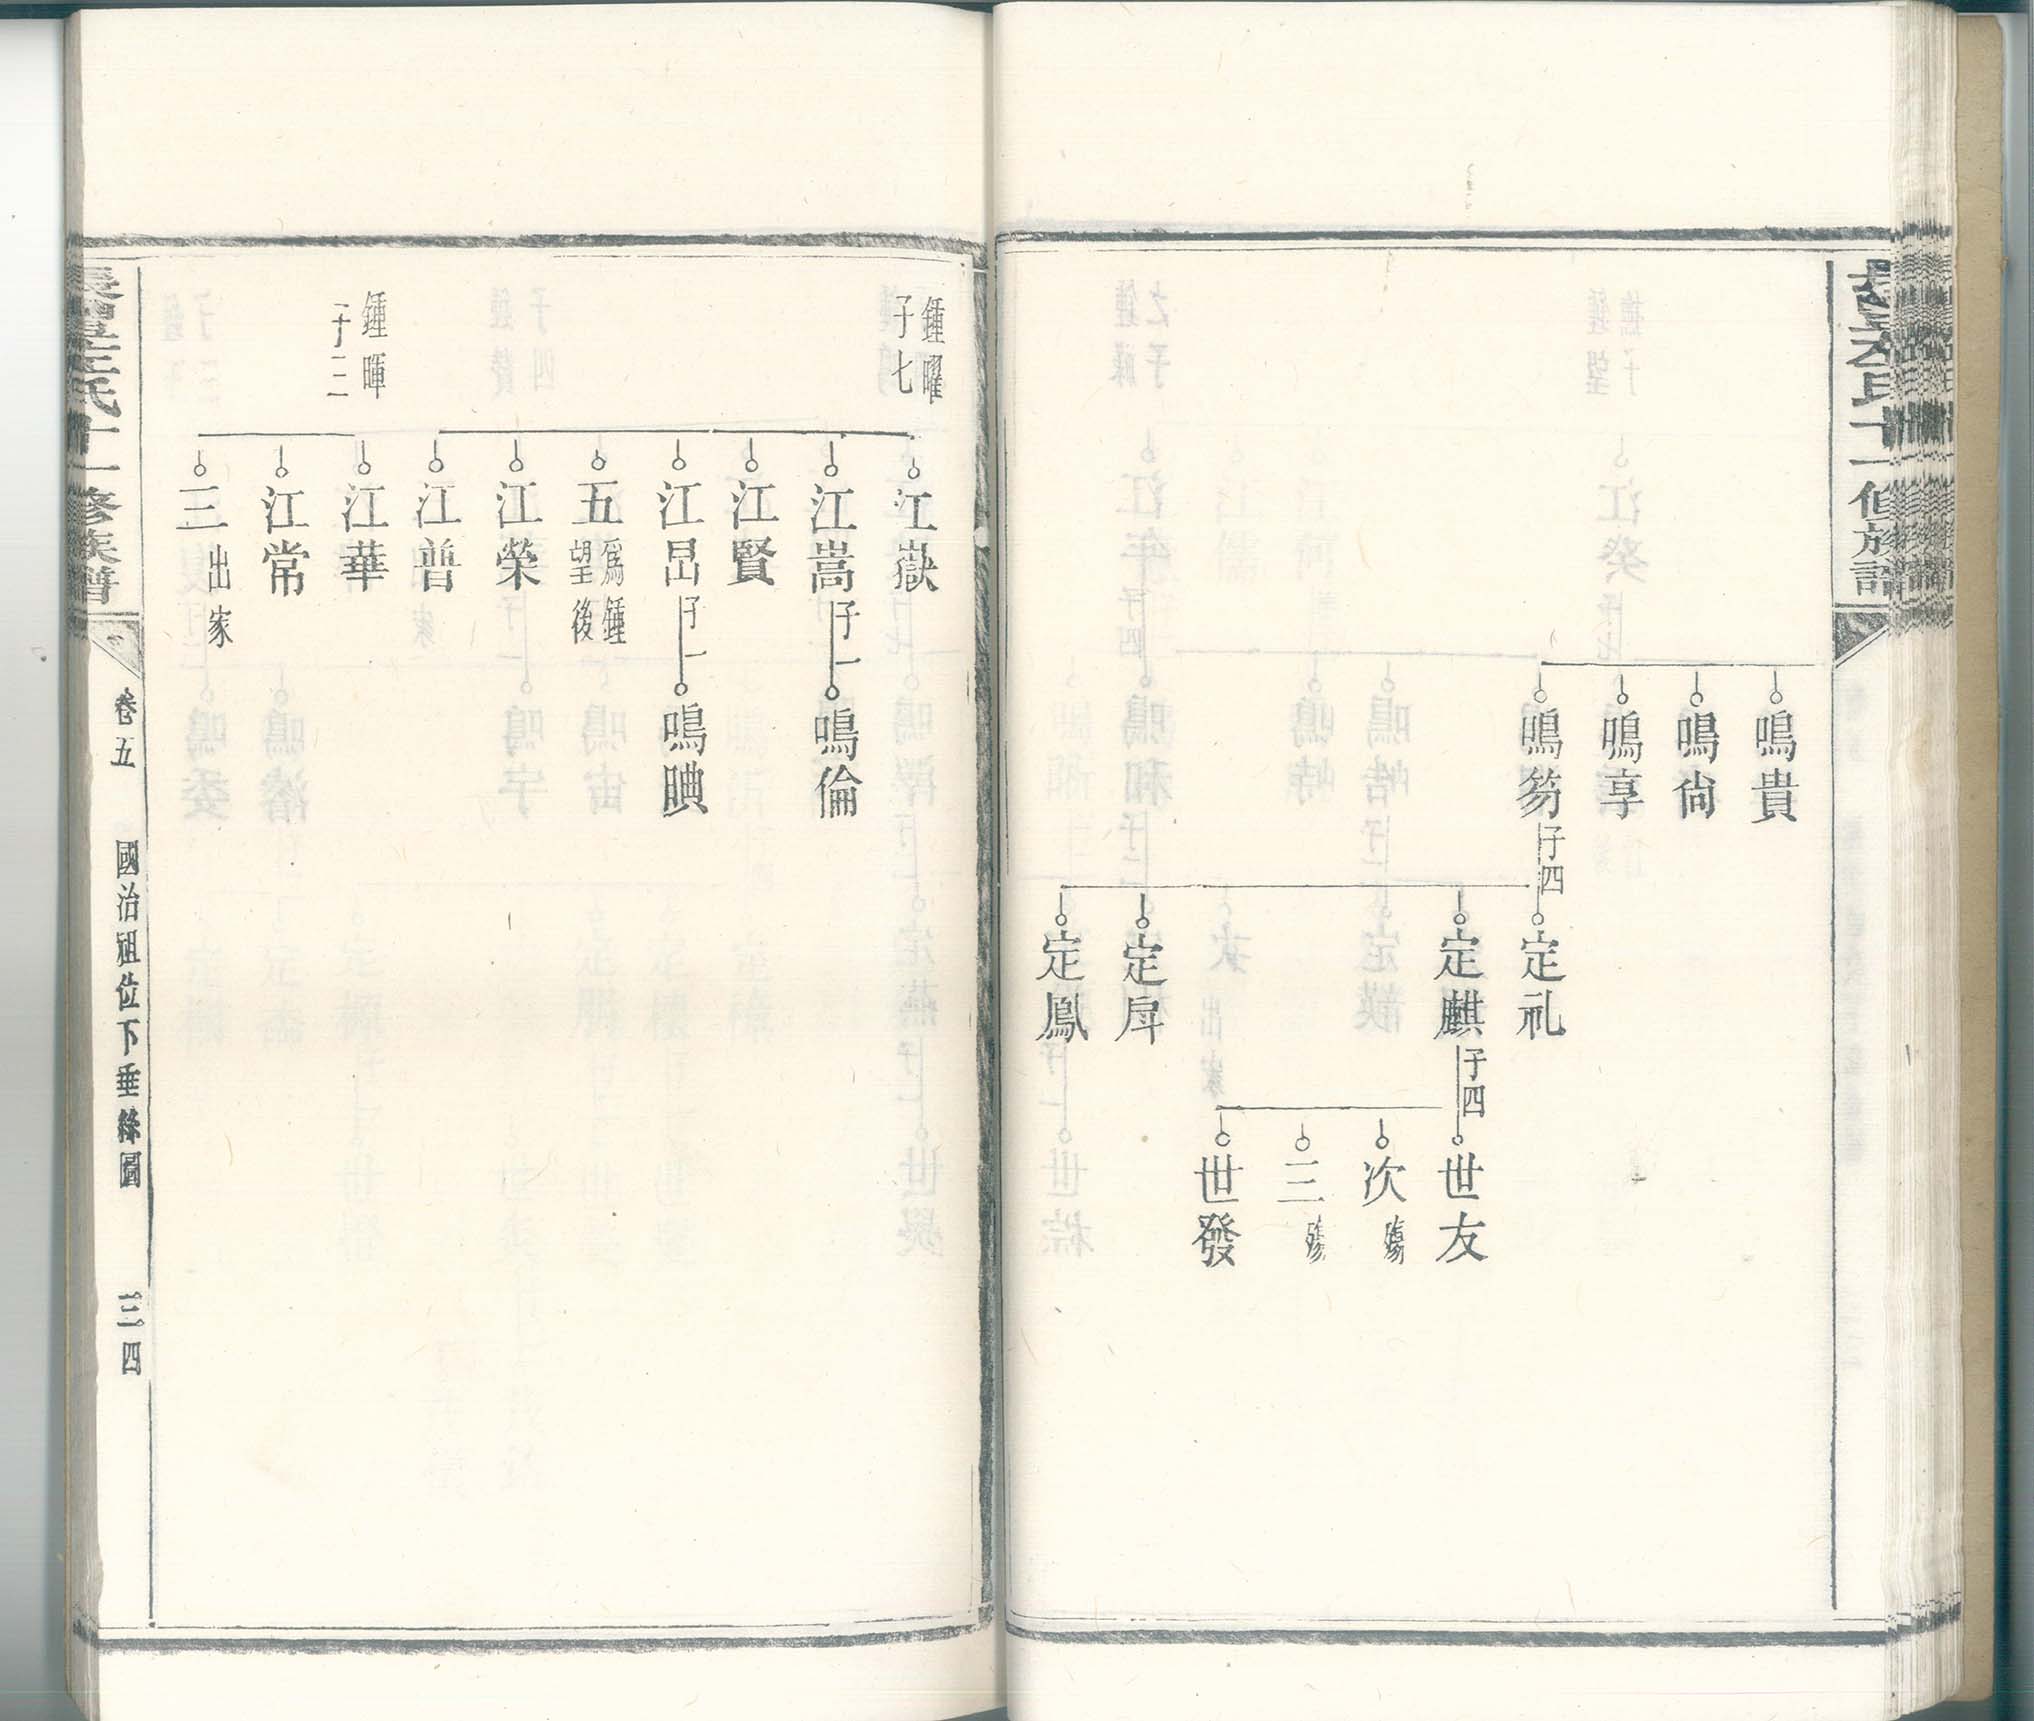 鳴貴
鳴尙
鳴享
鳴芴 子四
定礼
定麒 子四
定戽
定鳳
世友
次 殤
三 殤
世發
鍾曜
子七
江嶽
江嵩 子一
鳴倫
江賢
江昂 子一
鳴㬎
江榮
五 爲鍾
望後
江普
鍾暉
子三
江華
江常
三 出家
氏十一修族譜
卷五
國治祖位下垂絲圖
三四